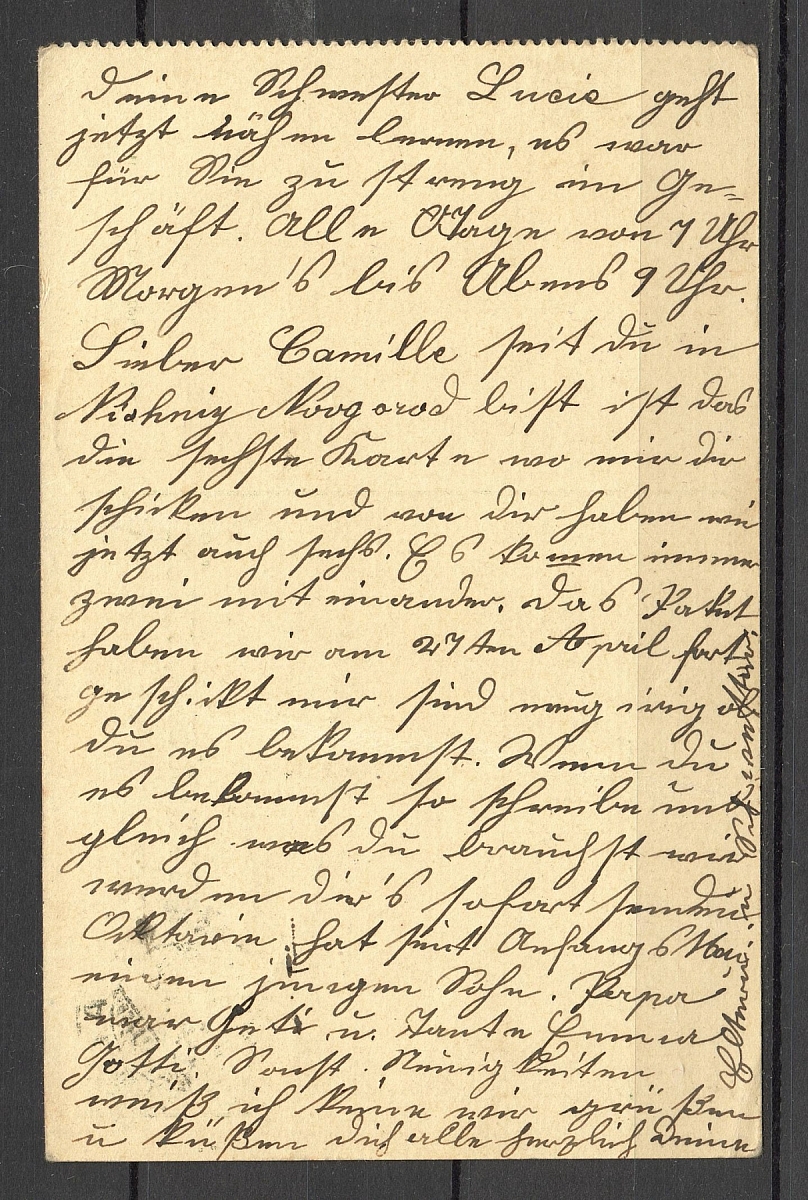 Deine Schwester Lucie geht
jetzt nähen lernen, es war
für Sie zu streng im Ge=
schäft. Alle Tage von 7 Uhr
Morgen's bis Abens 9 Uhr.
Lieber Camille seit du in
Nishniy Novgorod bist ist das
die sechste Karte wo mir dir
schicken und von dir haben wir
jetzt auch sechs. Es komen immer
zwei mit einander. Das Paket
haben wir am 27ten April fort
geschikt mir sind neugirig ob
du es bekommst. Wenn du
es bekommst so schreibe uns
gleich was du brauchst wir
werden dir's sofort senden
hat seit Anfangs Mai
einen jungen Sohn. Papa
war Geti u. Tante Emma
Gotti. Sonst Neuigkeiten
weiß ich keine wir grüßen
u küßen dich alle herzlich Deine
Eltern u Geschwister.